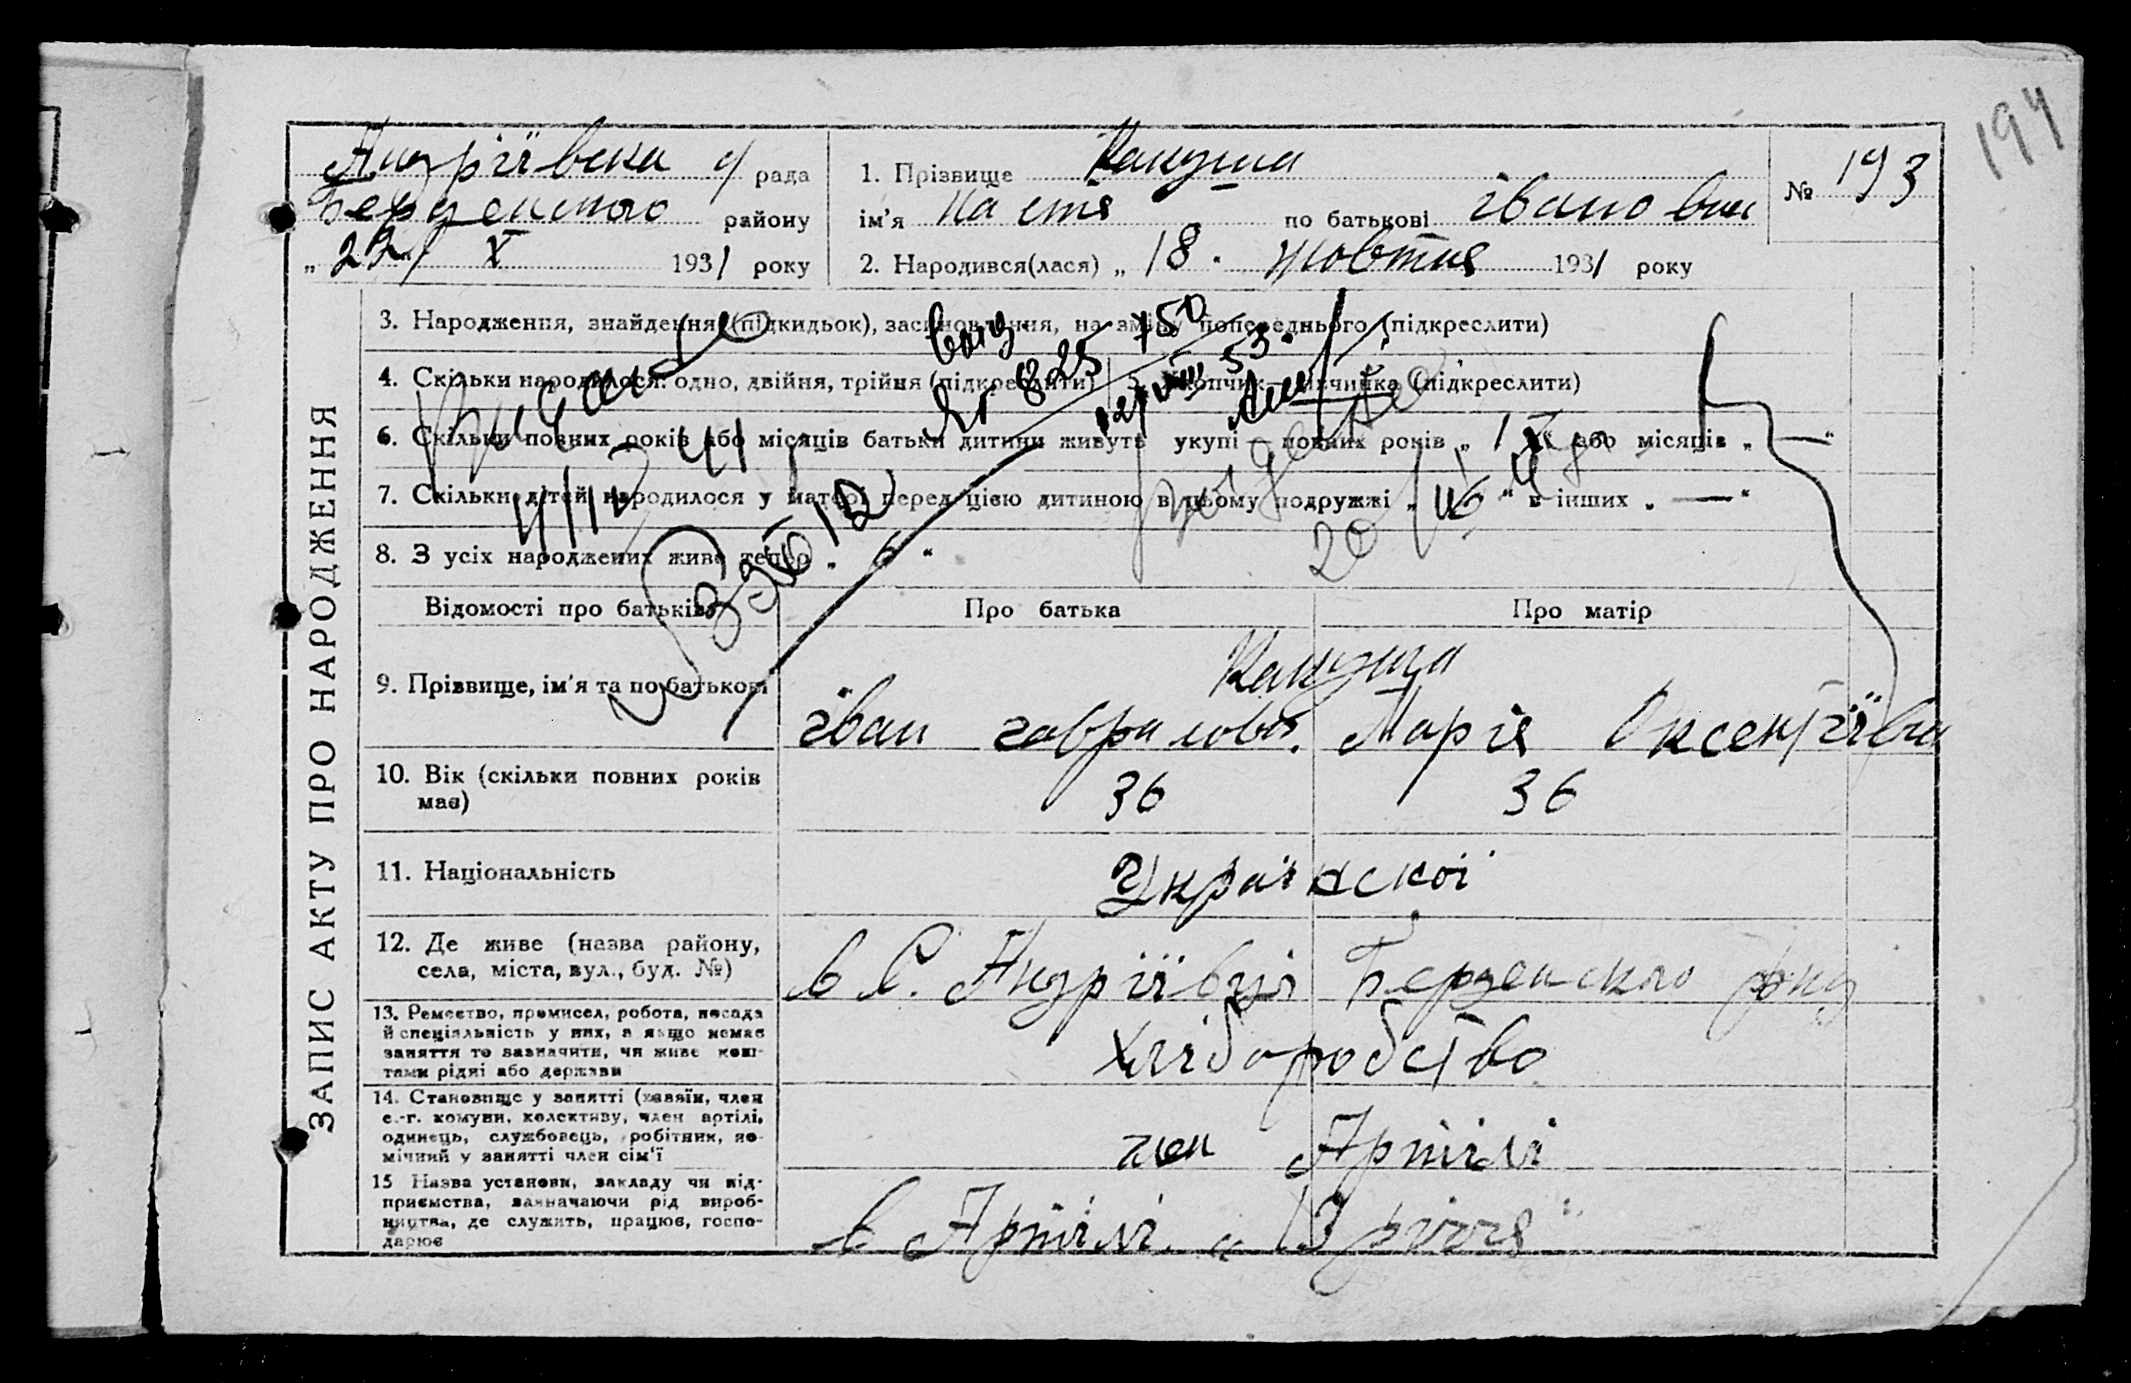 194
Андріївска с/ рада
Бердянського району
„ 22 / X 1931 року
1. Прізвище Капуша
ім’я Настя по батькові івановна
2. Народився(лася) „ 18 . жовтня 1931 року
№ 193
ЗАПИС АКТУ ПРО НАРОДЖЕННЯ
3. Народження, знайдення (підкидьок), засиновлення, на зміну попереднього (підкреслити)
4. Скільки народилося: одно, двійня, трійня (підкреслити) 5. Хлопчик — дівчинка (підкреслити)
6. Скільки повних років або місяців батьки дитини живуть укупі — повних років „ 1 “ або місяців „ — “
7. Скільки дітей народилося у матері перед цією дитиною в цьому подружжі „ “ в інших „ — “
8. З усіх народжених живе тепер „ 6 “
825 750
53
41
Відомості про батьків Про батька Про матір
9. Прізвище, ім’я та по батькові
Капуша
іван гаврилов. Марія Оксентіївна
10. Вік (скільки повних років
має)
36 36
11. Національність
Українскої
12. Де живе (назва району,
села, міста, вул., буд. №)
в С. Андріївці Бердянского р-ну
13. Ремество, промисел, робота, посада
й спеціяльність у них, а якщо немає
заняття то зазначити, чи живе кош-
тами рідні або держави
Хліборобство
14. Становище у занятті (хазяїн, член
с.-г. комуни, колективу, член артілі,
одинець, службовець, робітник, по-
мічний у занятті член сім’ї
член Артілі
15 Назва установи, закладу чи під-
приємства, зазначаючи рід вироб-
ництва, де служить, працює, госпо-
дарює
в Артілі „ 13 річчя “